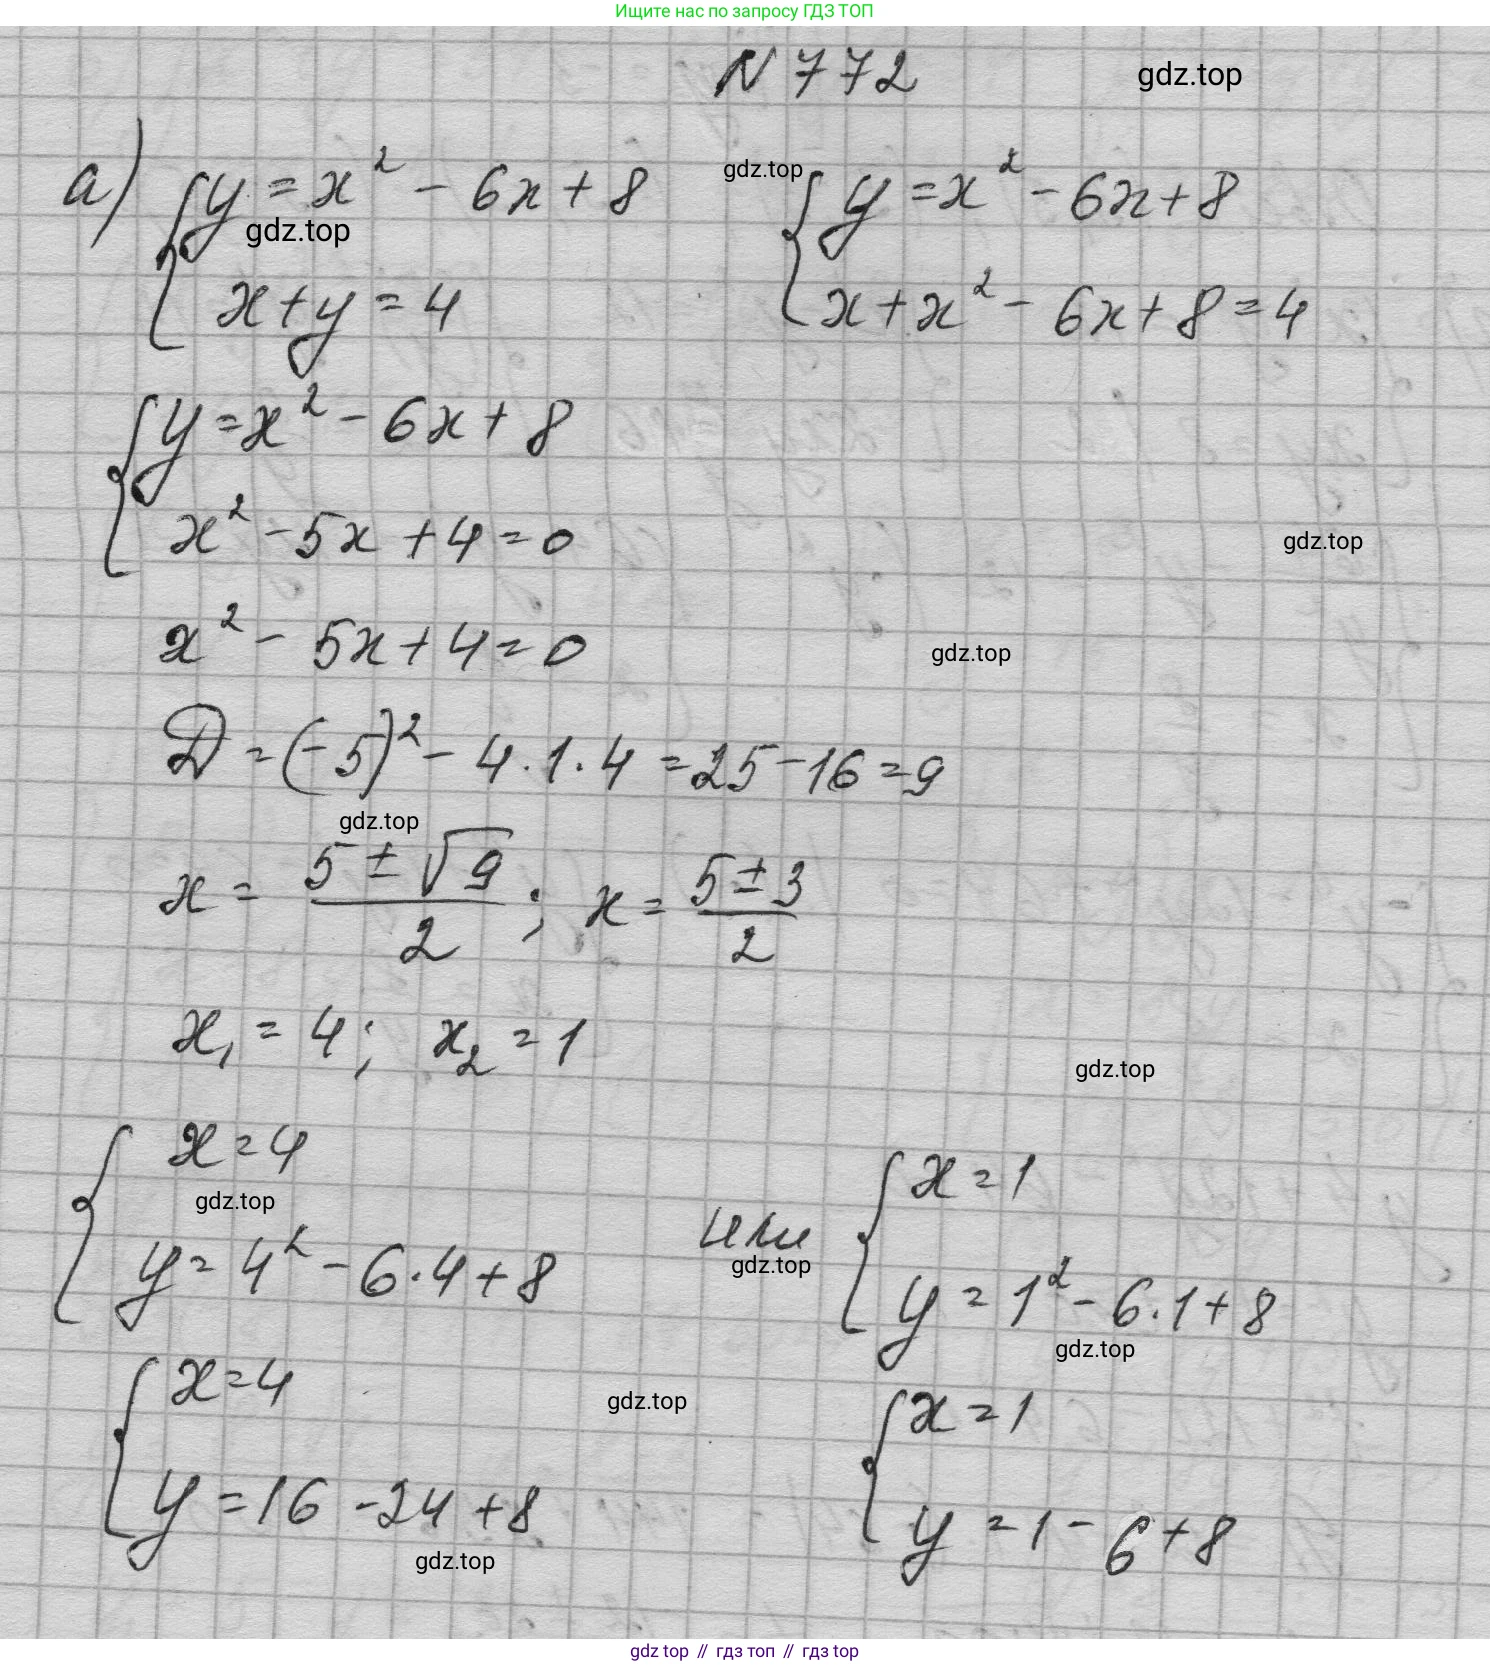 Ищите нас по запросу ГДЗ ТОП
N 772
gdz.top
а) { y = x² - 6x + 8
gdz.top
{ y = x² - 6x + 8
gdz.top
x + y = 4
x + x² - 6x + 8 = 4
{ y = x² - 6x + 8
x² - 5x + 4 = 0
gdz.top
x² - 5x + 4 = 0
gdz.top
D = (-5)² - 4 · 1 · 4 = 25 - 16 = 9
gdz.top
x = (5 ± √9)/2 ; x = (5 ± 3)/2
x₁ = 4; x₂ = 1
gdz.top
{ x = 4
gdz.top
y = 4² - 6 · 4 + 8
или
gdz.top
{ x = 1
y = 1² - 6 · 1 + 8
gdz.top
{ x = 4
y = 16 - 24 + 8
gdz.top
gdz.top
{ x = 1
y = 1 - 6 + 8
gdz top // гдз топ // гдз top